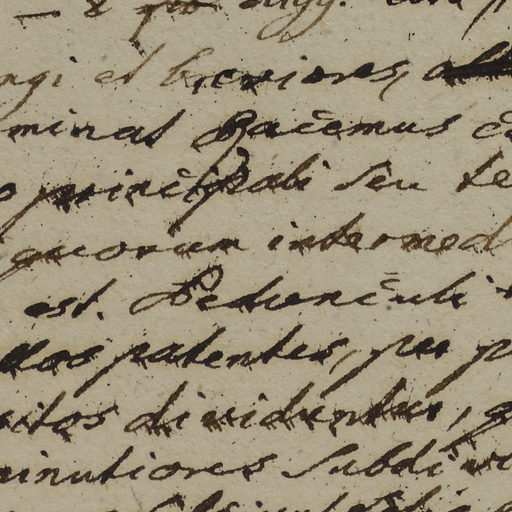 ngi et breviores,
minat Racemus
principali seu te
quorum intermed
est. Pedunculi
patentes, per p
sitos dividuntur, q
minutiores subdivi